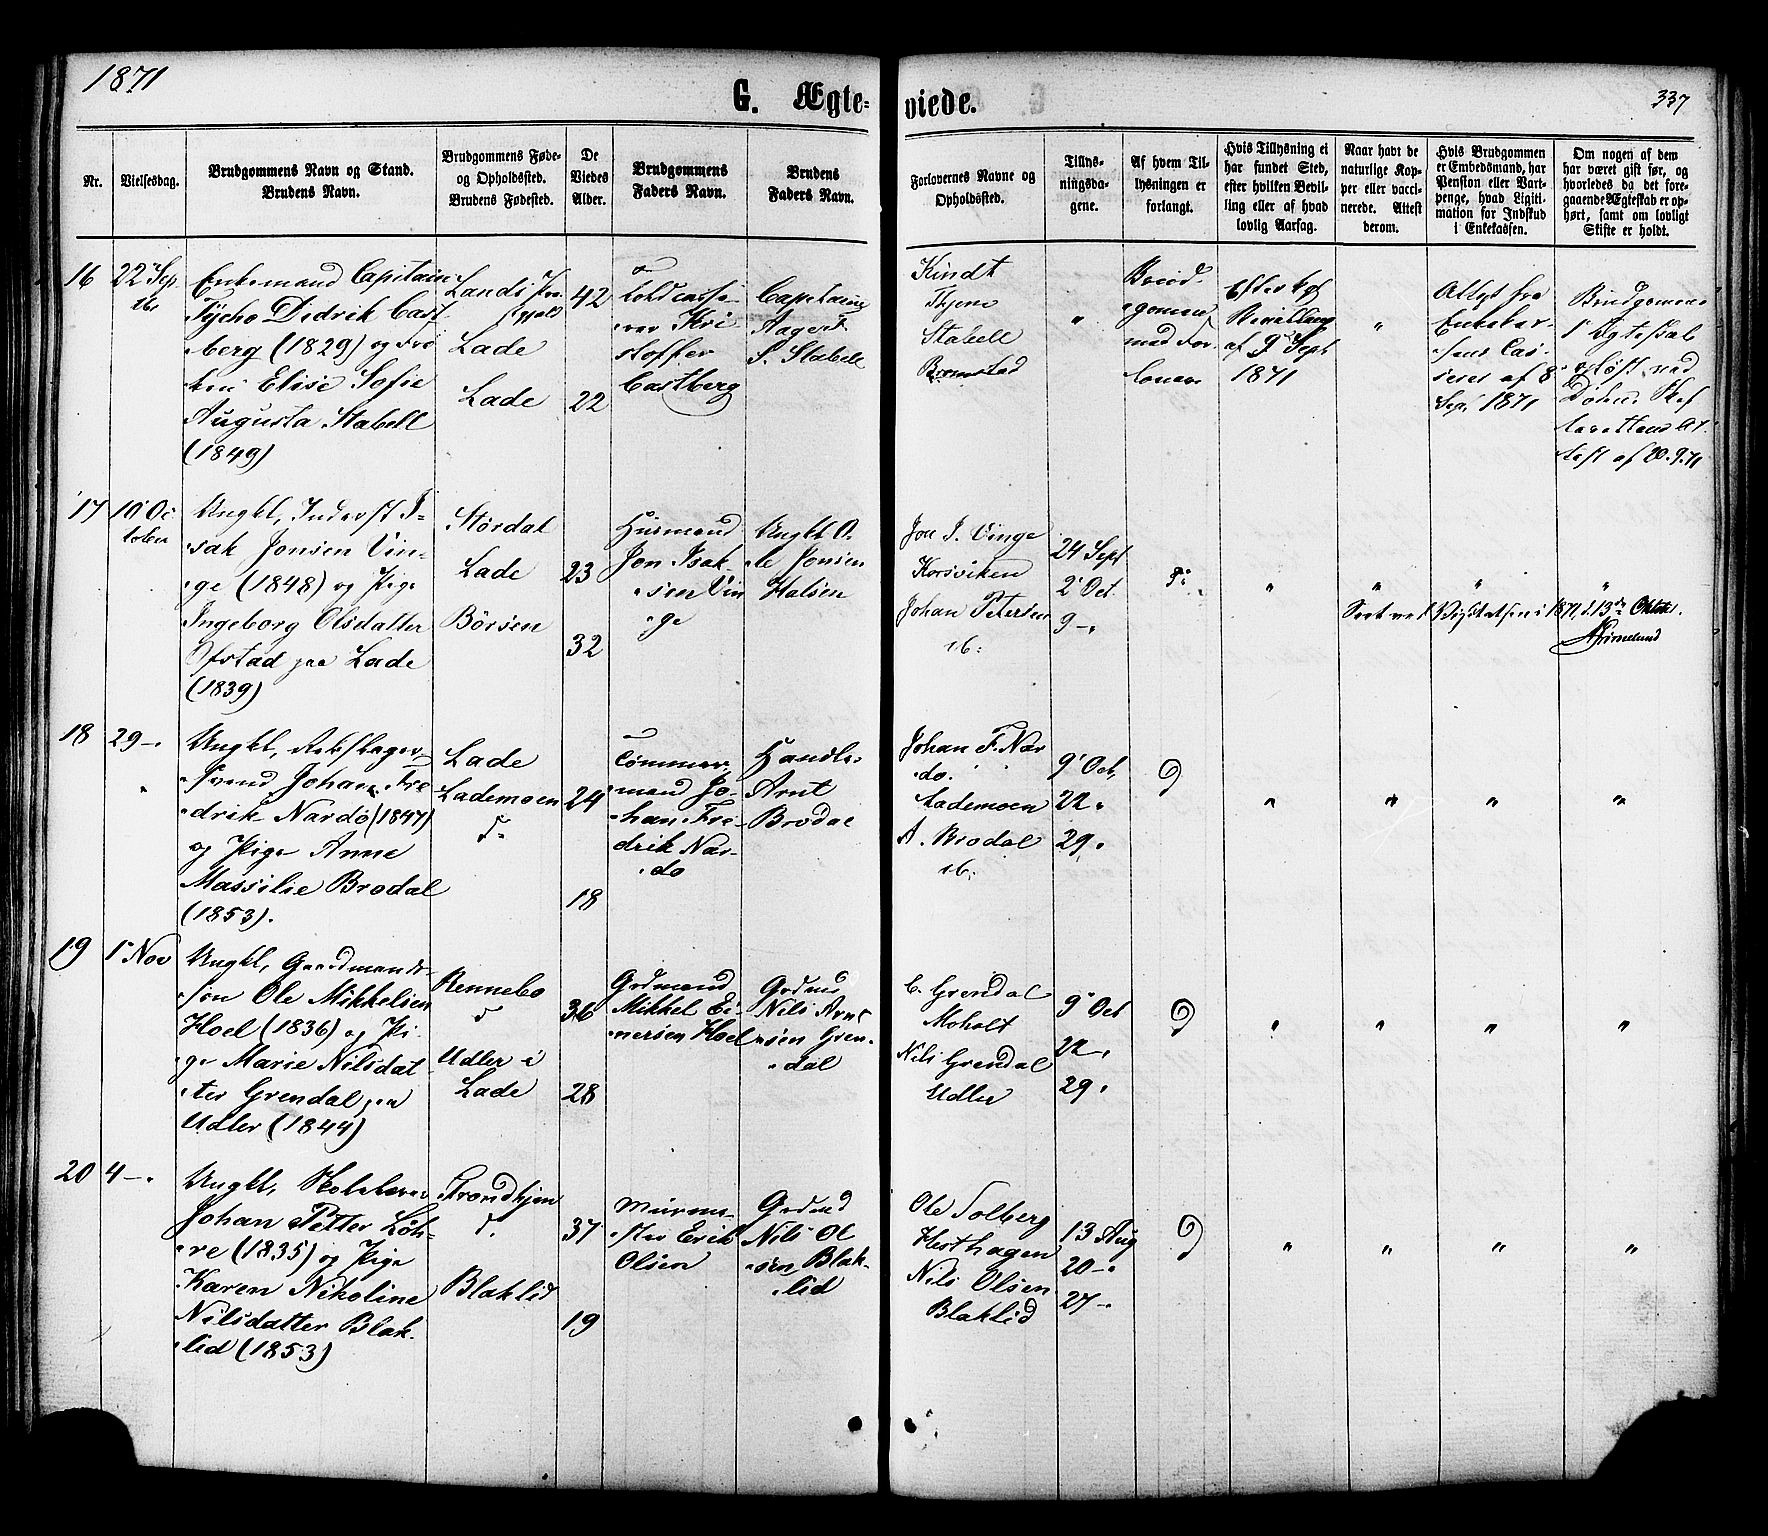 1871
G. Ægte=
viede.
337
Nr.
Vielsesdag.
Brudgommens Navn og Stand.
Brudens Navn.
Brudgommens Føde-
og Opholdssted.
Brudens Fødested.
De
Viedes
Alder.
Brudgommens
Faders Navn.
Brudens
Faders Navn.
Forlovernes Navne og
Opholdssted.
Tillys-
ningsda-
gene.
Af hvem Til-
lysningen er
forlangt.
Hvis Tillysning ei
har fundet Sted,
efter hvilken Bevil-
ling eller af hvad
lovlig Aarsag.
Naar havt de
naturlige Kop-
per eller vacci-
nerede. Attest
derom.
Hvis Brudgommen
er Embedsmand, har
Pension eller Vart-
penge, hvad Ligiti-
mation for Indskud
i Enkekassen.
Om nogen af dem
har været gift før, og
hvorledes da det fore-
gaaende Ægteskab er op-
hørt, samt om lovligt
Skifte er holdt.
16
22 Sep
Enkemand Capitain
Tycho Didrik Cast
berg (1829) og Frø
ken Elise Sofie
Augusta Stabell
(1849)
Lands
Lade
Lade
42
22
Kri
stoffer
Castberg
Capitaine
Aagert
S. Stabell
Kindt
Stabell
Bromstad
"
Brud
gomen
med For
loveren
Efter kgl
Bevilling
af 9 Sept
1871
"
Attest fra
Enkekas
sens Cas
serer af 8
Sept 1871
Brudgomens
1 Ægteskab
opløst ved
Døden Skif
terettens At
test af 20.9.71
17
10 Oc
tober
Ungkl, Inderst I=
sak Jonsen Vin=
ge (1848) og Pige
Ingeborg Olsdatter
Ofstad paa Lade
(1839)
Stordal
Lade
Børsen
23
32
Husmand
Jon Isak
sen Vin
ge
Ungkl O
le Jonsen
Halsen
Jon I. Vinge
Korsviken
Johan Petersen
ib.
24 Sept
2 Oct
9 -
"
"
"
"
1871, d. 13de Octbr.
18
29 -
"
Ungkl, Rebslager
svend Johan Fre
drik Nardo (1847)
og Pige Anne
Massilie Brodal
(1853).
Lade
Lademoen
do
24
18
Tømmer
mand Jo
han Fre
drik Nar
do
Handls
Arnt
Brodal
Johan F. Nar
do.
Lademoen
A. Brodal
ib.
9 Oct,
22 "
29 "
"
"
"
"
19
1 Nov
Ungkl, Gaardmands
søn Ole Mikkelsen
Hoel (1836) og Pi
ge Marie Nilsdat
ter Grendal paa
Udler (1844)
Rennebo
do
Udler i
Lade
36
28
Grdmand
Mikkel Ei
nersen Hoel
Grdmd
Nils Arnt
sen Gren
dal
E. Grendal
Moholt
Nils Grendal
Udler
9 Oct
22 -
29 "
"
"
"
"
20
4 -
Ungkl, Skolelærer
Johan Petter Løh
re (1835) og Pige
Karen Nikoline
Nilsdatter Blak
lid (1853)
Trondhjem
do
Blaklid
37
19
Murme
ster Erik
Olsen
Grdmd
Nils Ol
sen Blak
lid
Ole Solberg
Hesthagen
Nils Olsen
Blaklid
13 Aug
20 -
27 -
"
"
"
"